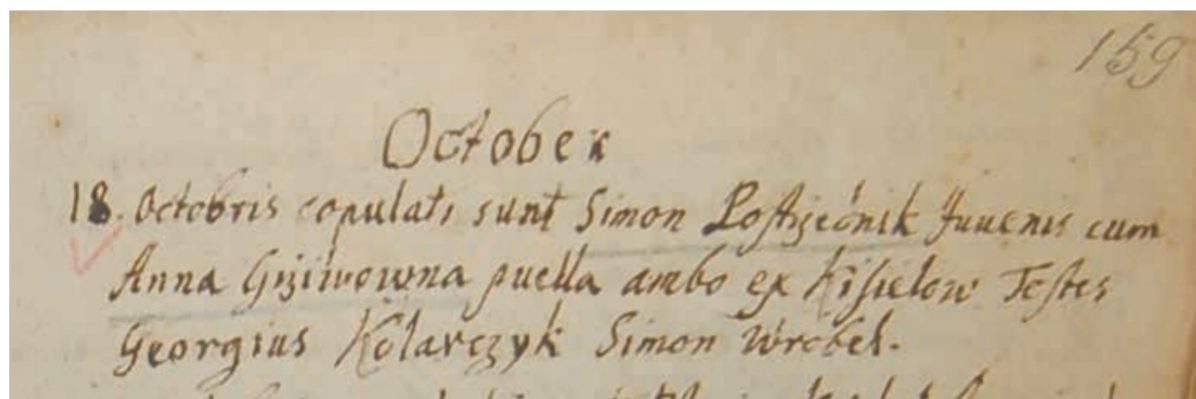 159
October
18. Octobris copulati sunt Simon Postrzećnik Juvenis cum
Anna Grziwowna puella ambo ex Kisielow Testes
Georgius Kolarczyk Simon Wrobel.